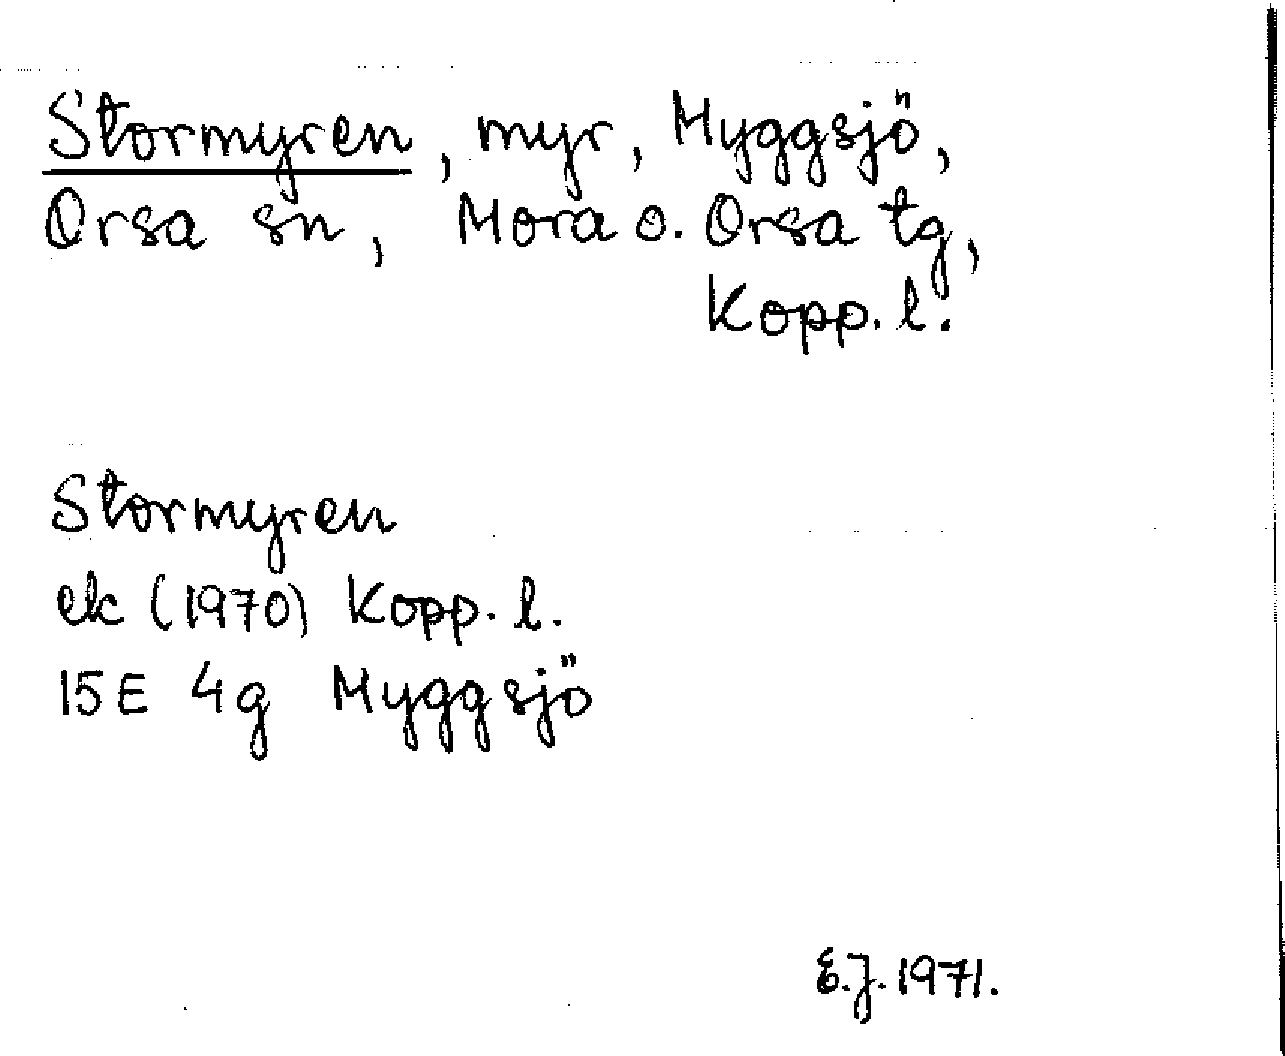 Stormyren, myr, Myggsjö,
Orsa sn, Mora o. Orsa tg,
Kopp. l.
Stormyren
ek (1970) Kopp. l.
15E 4g Myggsjö
E.J. 1971.